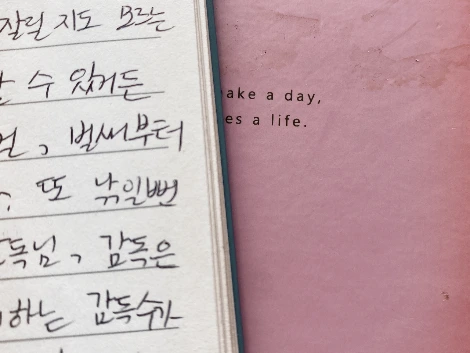 잘릴 지도 모르는
수 있거든
, 벌써부터
또 낚일뻔
독님, 감독은
하는 감독수가
ake a day,
es a life.